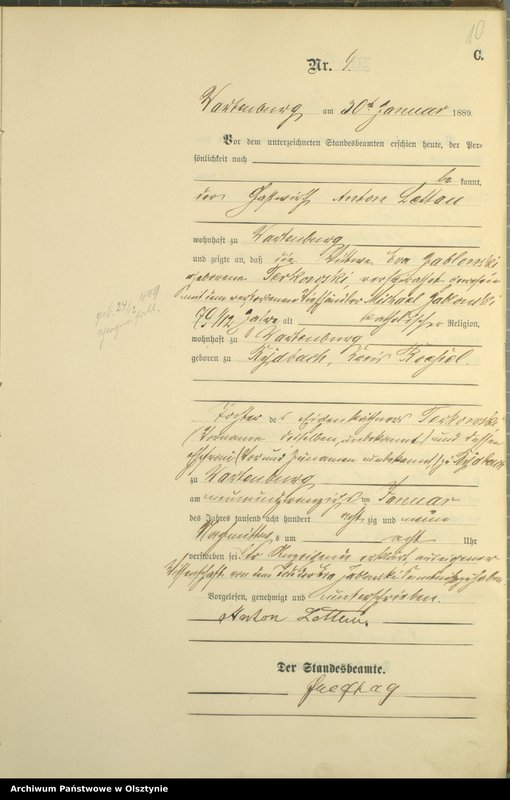 10
C.
Nr. 4.
Wartenburg am 30ten Januar 1889.
Vor dem unterzeichneten Standesbeamten erschien heute, der Per-
sönlichkeit nach
be kannt,
der Gastwirth Anton Lettau
wohnhaft zu Wartenburg
und zeigte an, daß die Wittwe Eva Jablonski
geborene Terkowski verheirathet gewesen
mit dem verstorbenen Michael Jablonski
79 1/12 Jahre alt katholischer Religion,
wohnhaft zu Wartenburg
geboren zu Kreis Roessel.
Tochter des Eigenkäthners Terkowski
(Vorname desselben unbekannt) und dessen
Ehefrau (Vor und Zunamen unbekannt)
zu Wartenburg
am neunundzwanzigsten Januar
des Jahres tausend acht hundert acht zig und neun
Nachmittags um acht Uhr
verstorben sei. Der Anzeigende erklärt aus eigener
Wissenschaft von dem Tode der Eva Jablonski Kenntniß zu haben.
Vorgelesen, genehmigt und unterschrieben.
Anton Lettau.
Der Standesbeamte.
Freytag
Archiwum Państwowe w Olsztynie